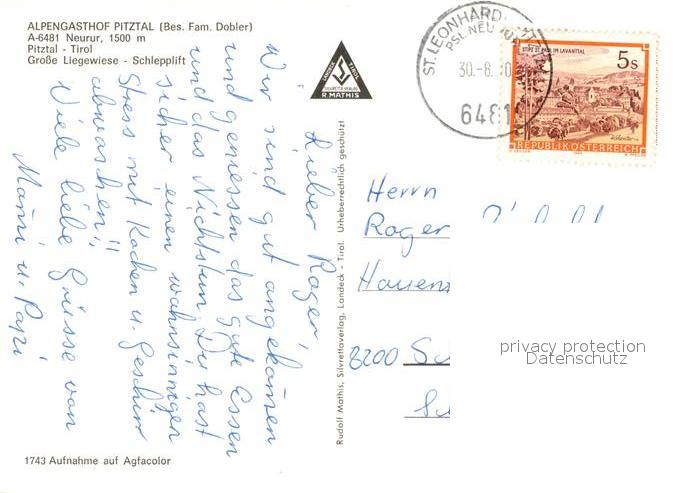 ALPENGASTHOF PITZTAL (Bes. Fam. Dobler)
A-6481 Neurur, 1500 m
Pitztal - Tirol
Große Liegewiese - Schlepplift
Lieber Roger,
Wir sind gut angekommen
und geniessen das gute Essen
und das Nichtstun. Du hast
sicher einen wahnsinnigen
Stress mit Kochen u. Geschirr
abwaschen!!
Viele liebe Grüsse von
Mami u. Papi
1743 Aufnahme auf Agfacolor
LANDECK TIROL
SILVRETTA VERLAG
R. MATHIS
Rudolf Mathis, Silvrettaverlag, Landeck - Tirol. Urheberrechtlich geschützt!
ST. LEONHARD
6481
STIFT ST. PAUL IM LAVANTTAL
5 S
REPUBLIK ÖSTERREICH
Herrn
Roger
Hauens
8200 Sc
privacy protection
Datenschutz